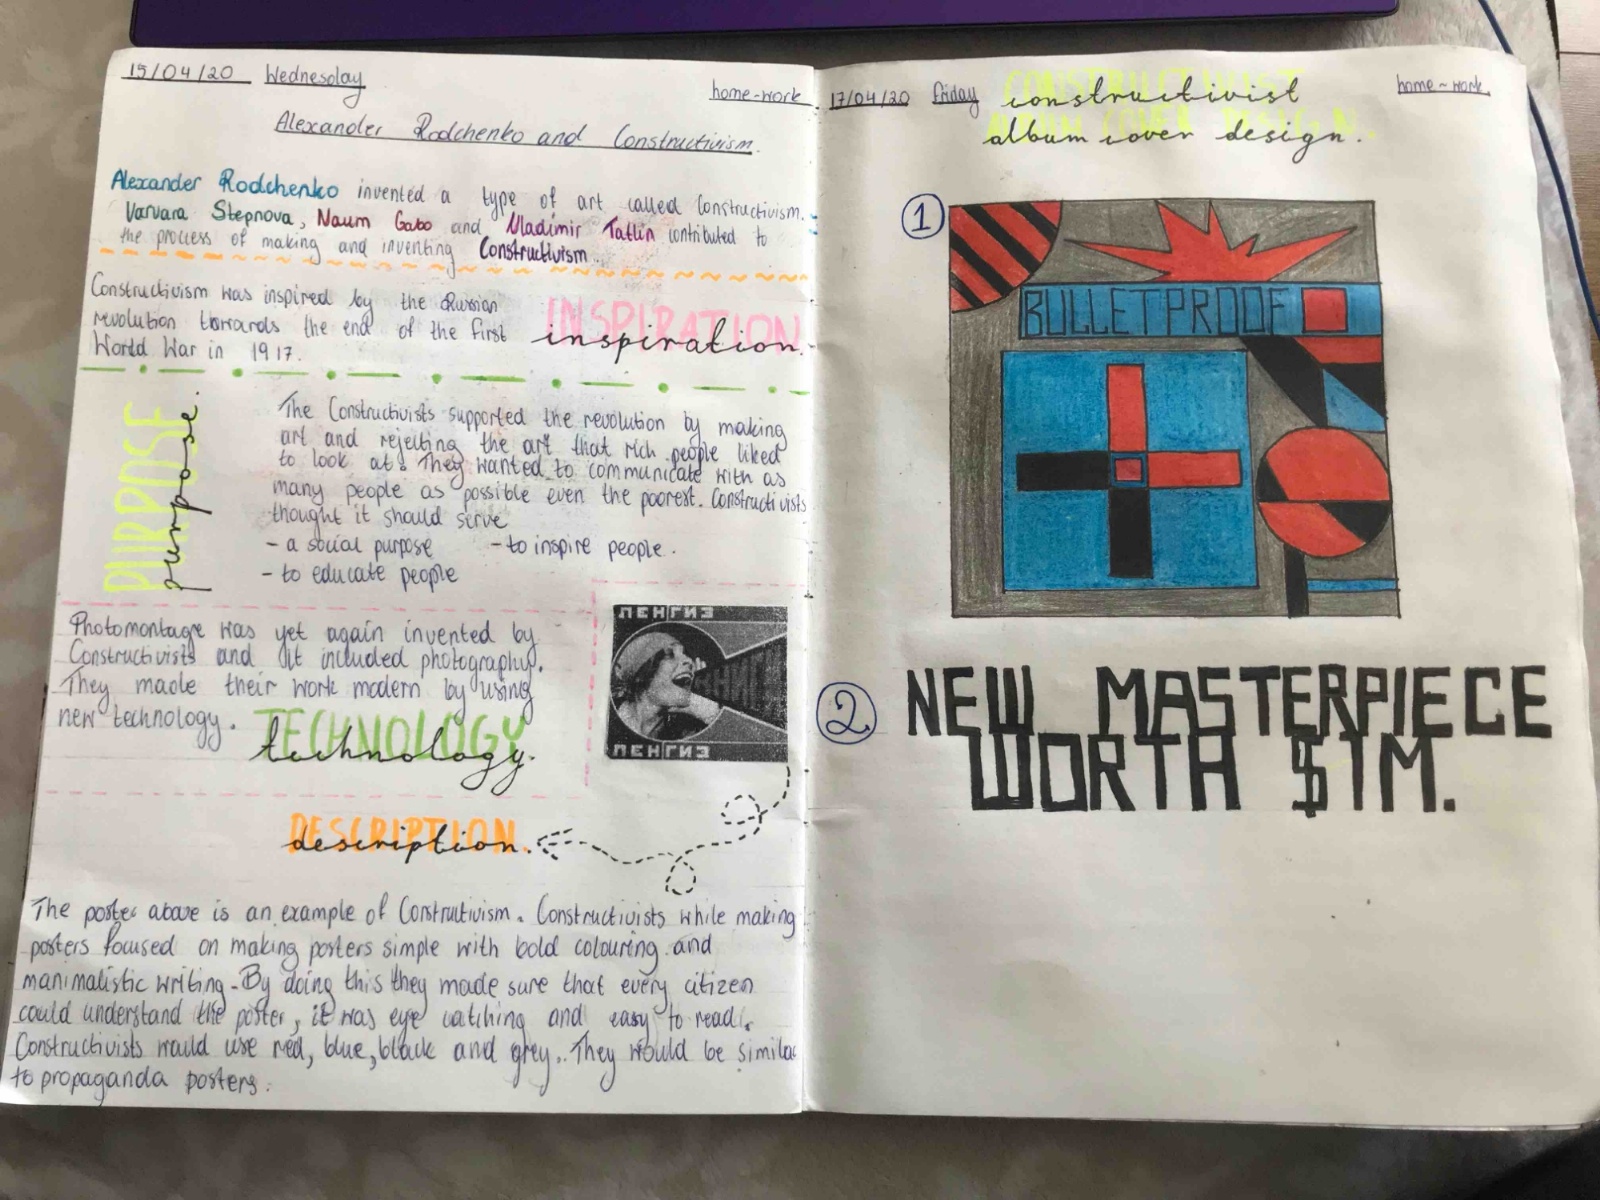 15/04/20 Wednesday
home-work
Alexander Rodchenko and Constructivism.
Alexander Rodchenko invented a type of art called Constructivism.
Varvara Stepnova, Naum Gabo and Vladimir Tatlin contributed to
the process of making and inventing Constructivism.
Constructivism was inspired by the Russian
revolution towards the end of the first
World War in 1917.
INSPIRATION
inspiration.
PURPOSE
purpose.
The Constructivists supported the revolution by making
art and rejecting the art that rich people liked
to look at. They wanted to communicate with as
many people as possible even the poorest. Constructivists
thought it should serve
- a social purpose - to inspire people.
- to educate people
Photomontage was yet again invented by
Constructivists and it included photography.
They made their work modern by using
new technology.
TECHNOLOGY
technology.
ЛЕНГИЗ
КНИГИ
ЛЕНГИЗ
DESCRIPTION
description.
The poster above is an example of Constructivism. Constructivists while making
posters focused on making posters simple with bold colouring and
manimalistic writing. By doing this they made sure that every citizen
could understand the poster, it was eye catching and easy to read.
Constructivists would use red, blue, black and grey. They would be similar
to propaganda posters.
17/04/20 Friday
home-work
CONSTRUCTIVIST
ALBUM COVER DESIGN.
constructivist
album cover design.
1
BULLETPROOF
2
NEW MASTERPIECE
WORTH $1M.